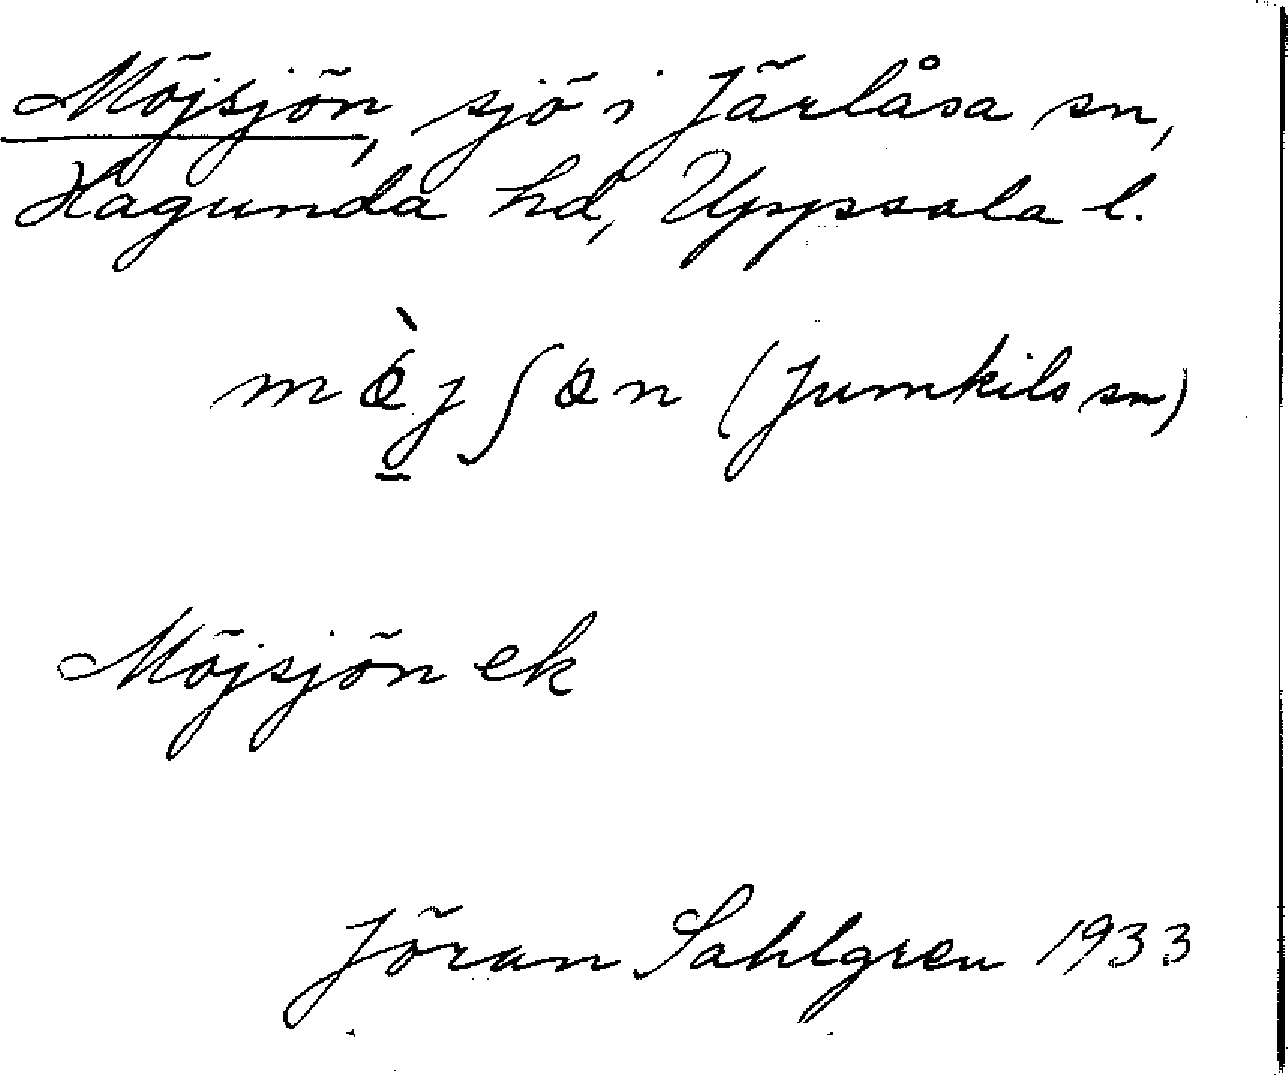 Möjsjön, sjö i Järlåsa sn,
Hagunda hd, Uppsala l.
mǿ̀jʃøn (Jumkils sn)
Möjsjön ek
Jöran Sahlgren 1933